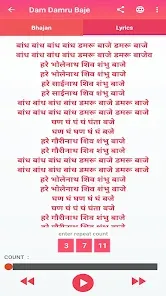 Dam Damru Baje
Bhajan
Lyrics
बांध बांध बांध बांध डमरू बाजे डमरू बाजे
बांध बांध बांध बांध डमरू बाजे डमरू बाजेव
हरे भोलेनाथ शिव शंभु बाजे
हरे भोलेनाथ शिव शंभु बाजे
हरे साईनाथ शिव शंभु बाजे
हरे भोलेनाथ शिव शंभु बाजे
बांध बांध बांध बांध डमरू बाजे डमरू बाजे
बांध बांध बांध बांध डमरू बाजे डमरू बाजे
घण घं घं घं घंता बजे
घण घं घण घं घं बजे
हरे गौरीनाथ शिव शंभु बाजे
हरे भोलेनाथ शिव शंभु बाजे
हरे गौरीनाथ शिव शंभु बाजे
हरे गौरीनाथ शिव शंभु बाजे
enter repeat count
3
7
11
COUNT :